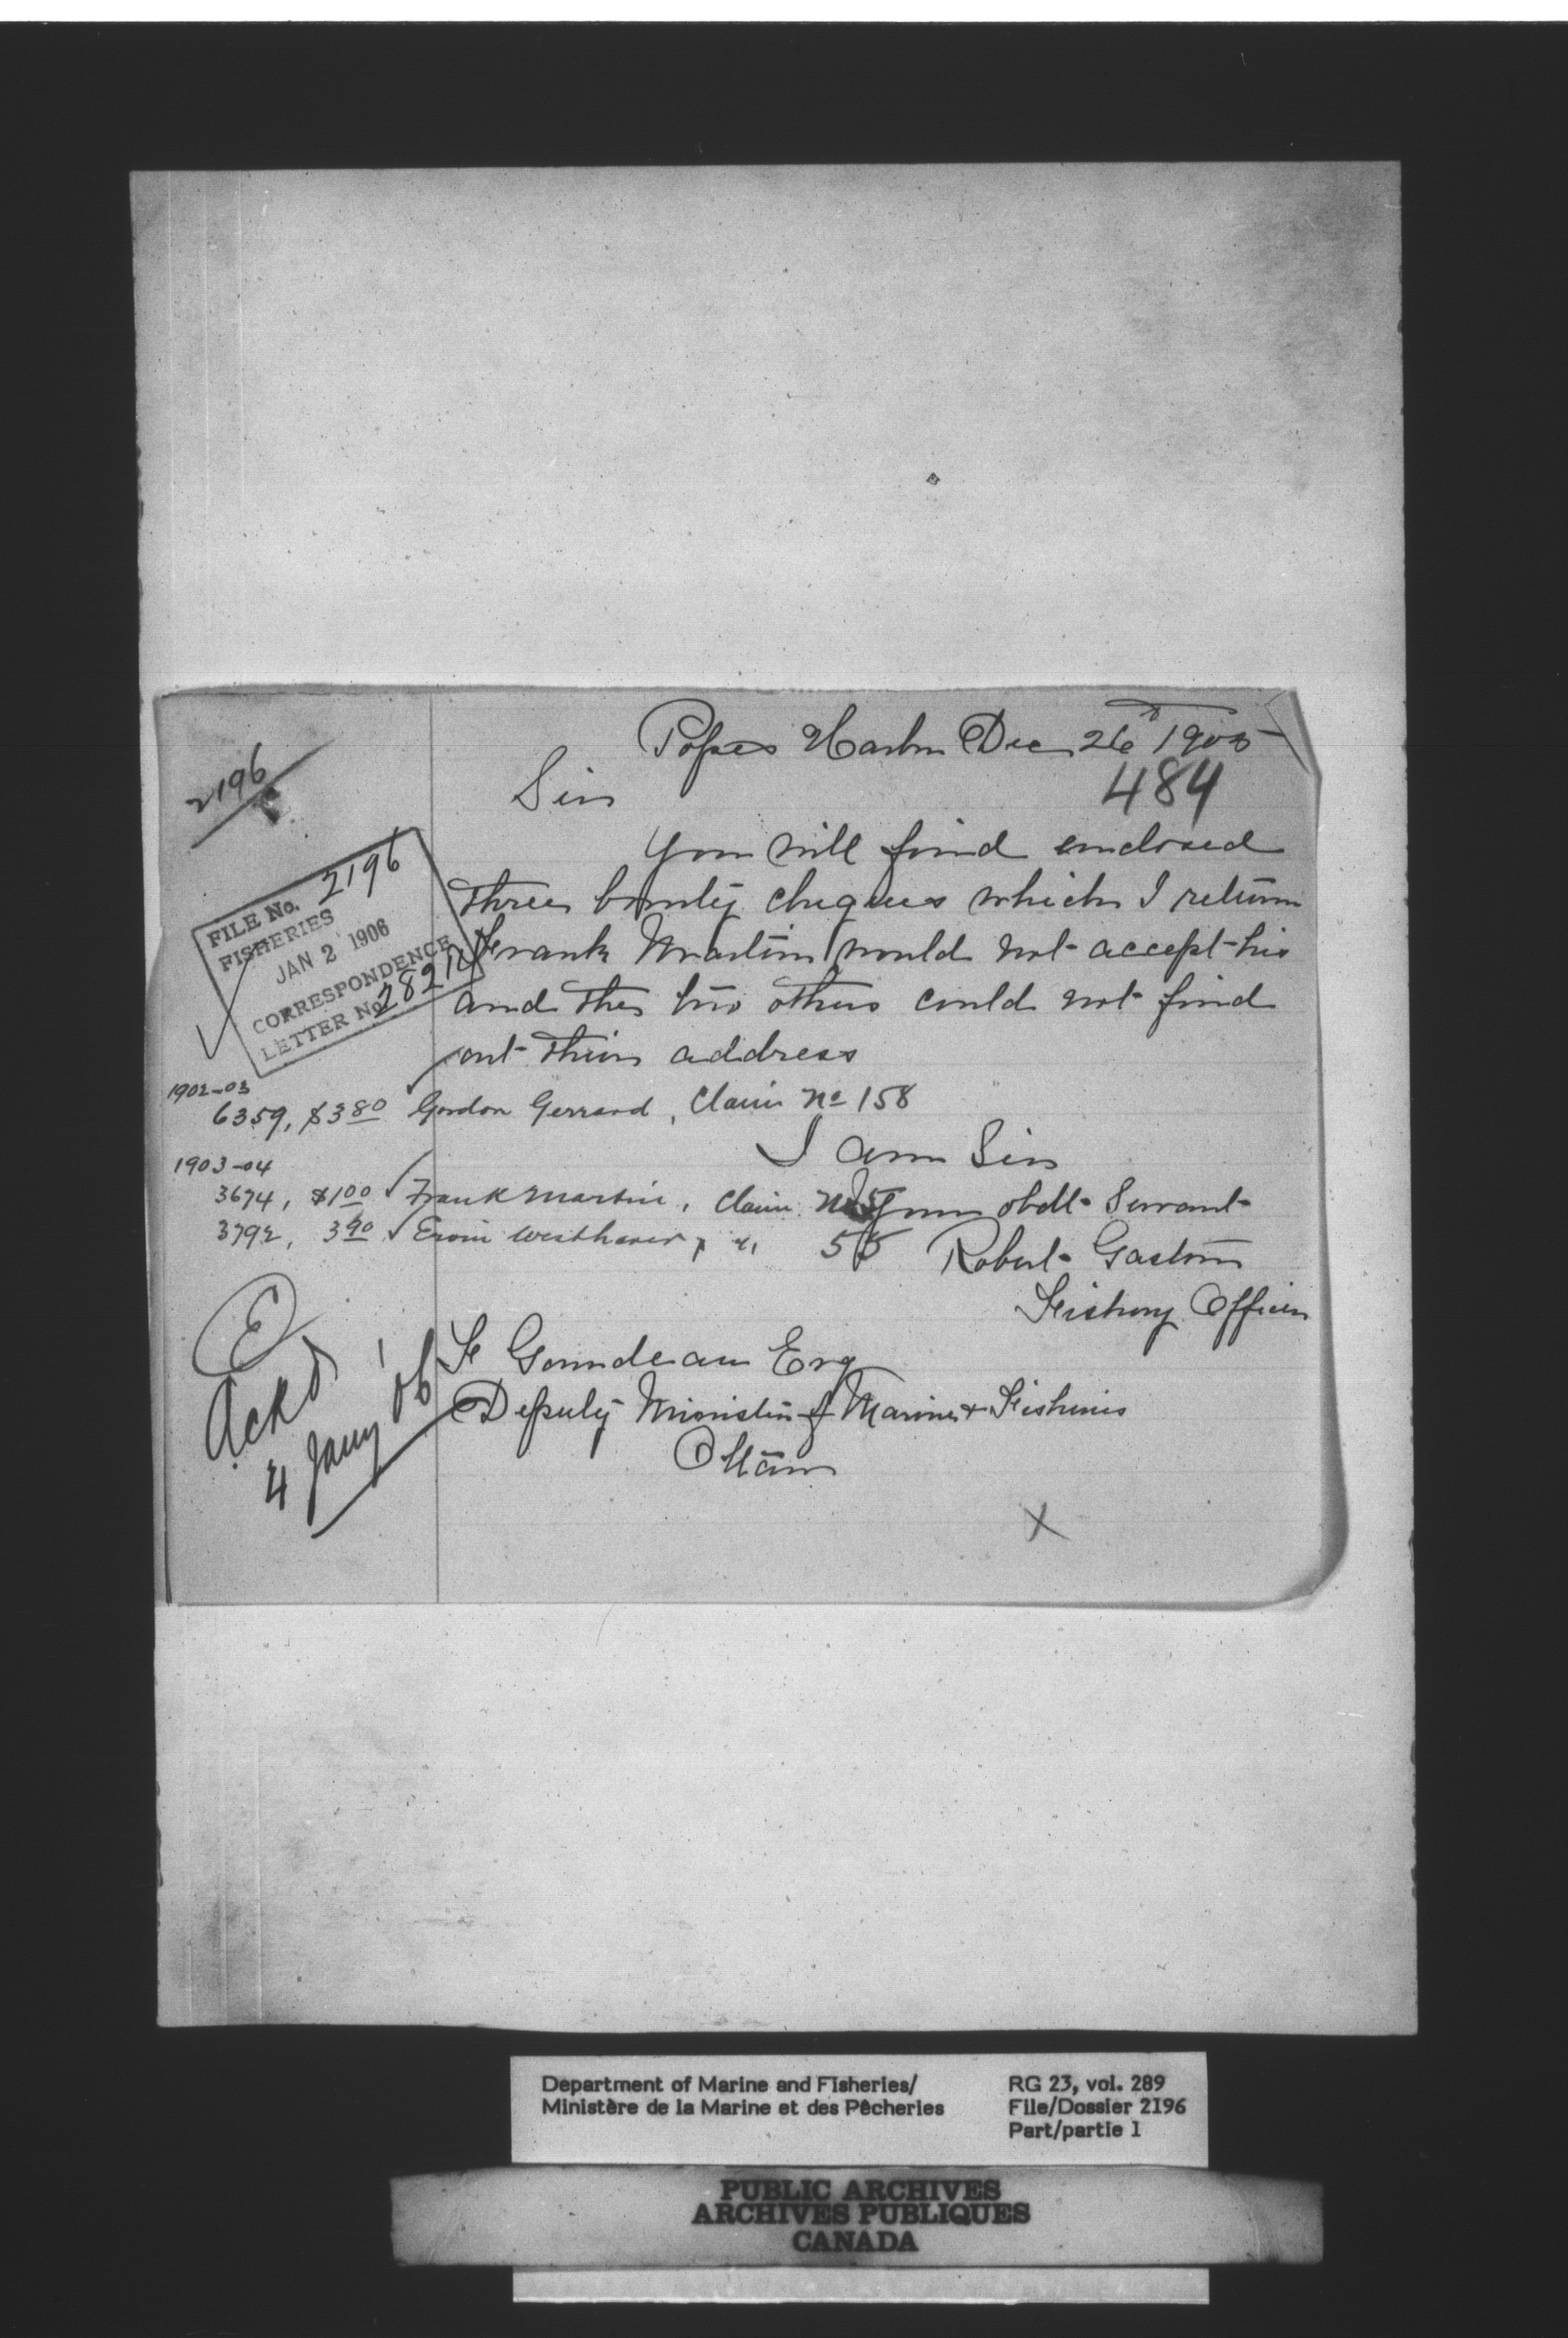 Popes Harbr Dec 26th 1905
484
Sir
2196
You will find enclosed
three bounty cheques which I return
Frank Martin would not accept his
and the two others could not find
out their address
FILE No. 2196
FISHERIES
JAN 2 1906
CORRESPONDENCE
LETTER No.
1902-03
6359, $3 80 Gordon Gerrard, Claim No 158
I am Sir
1903-04
3674, $1 00 Frank Martin, Claim No
Your obdt Servant
3792, 3 90 Ervin Westhaver, " 55
Robert Gaston
Fishery Officer
E
Ackd
4 Jany '06
F Gourdeau Esq
Deputy Minister of Marine & Fisheries
Ottawa
X
Department of Marine and Fisheries/
Ministère de la Marine et des Pêcheries
RG 23, vol. 289
File/Dossier 2196
Part/partie 1
PUBLIC ARCHIVES
ARCHIVES PUBLIQUES
CANADA